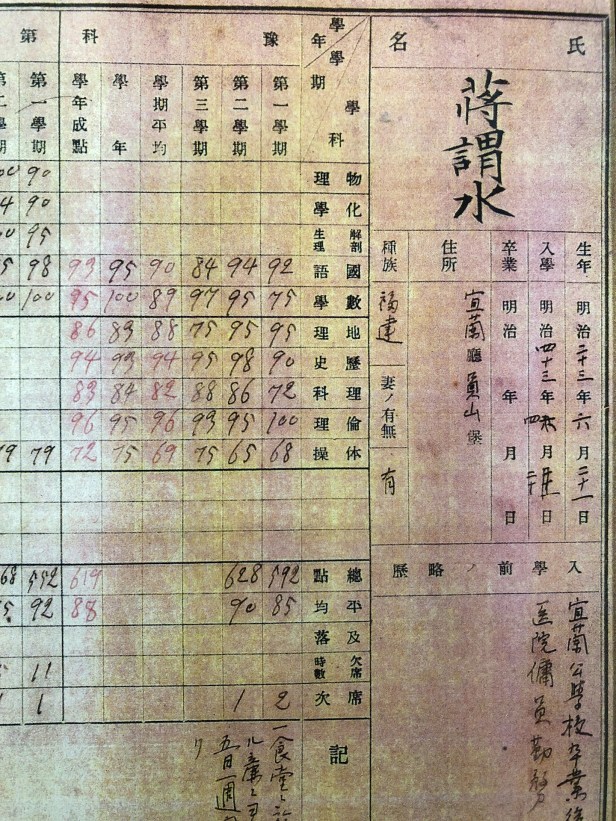 氏名
蔣謂水
生年 明治二十三年六月二十一日
入學 明治四十三年四月二十日
卒業 明治 年 月 日
住所 宜蘭廳員山堡
種族 福建 妻ノ有無 有
入學前ノ略歷
宜蘭公學校卒業後
医院傭員勤務
學年 豫科 第
學期 第一學期 第二學期 第三學期 學期平均 學年 學年成點 第一學期
學科
物理 90
化學 90
解剖生理 95
國語 92 94 84 90 95 93 98
數學 75 95 97 89 100 95 100
地理 95 95 75 88 83 86
歷史 90 98 95 94 93 94
理科 72 86 88 82 84 83
倫理 100 95 93 96 95 96
体操 68 65 75 69 75 72 79
總點 592 628 619 552
平均 85 90 88 92
及落
欠席時數 11
席次 2 1 1
記
一食堂
五日一週